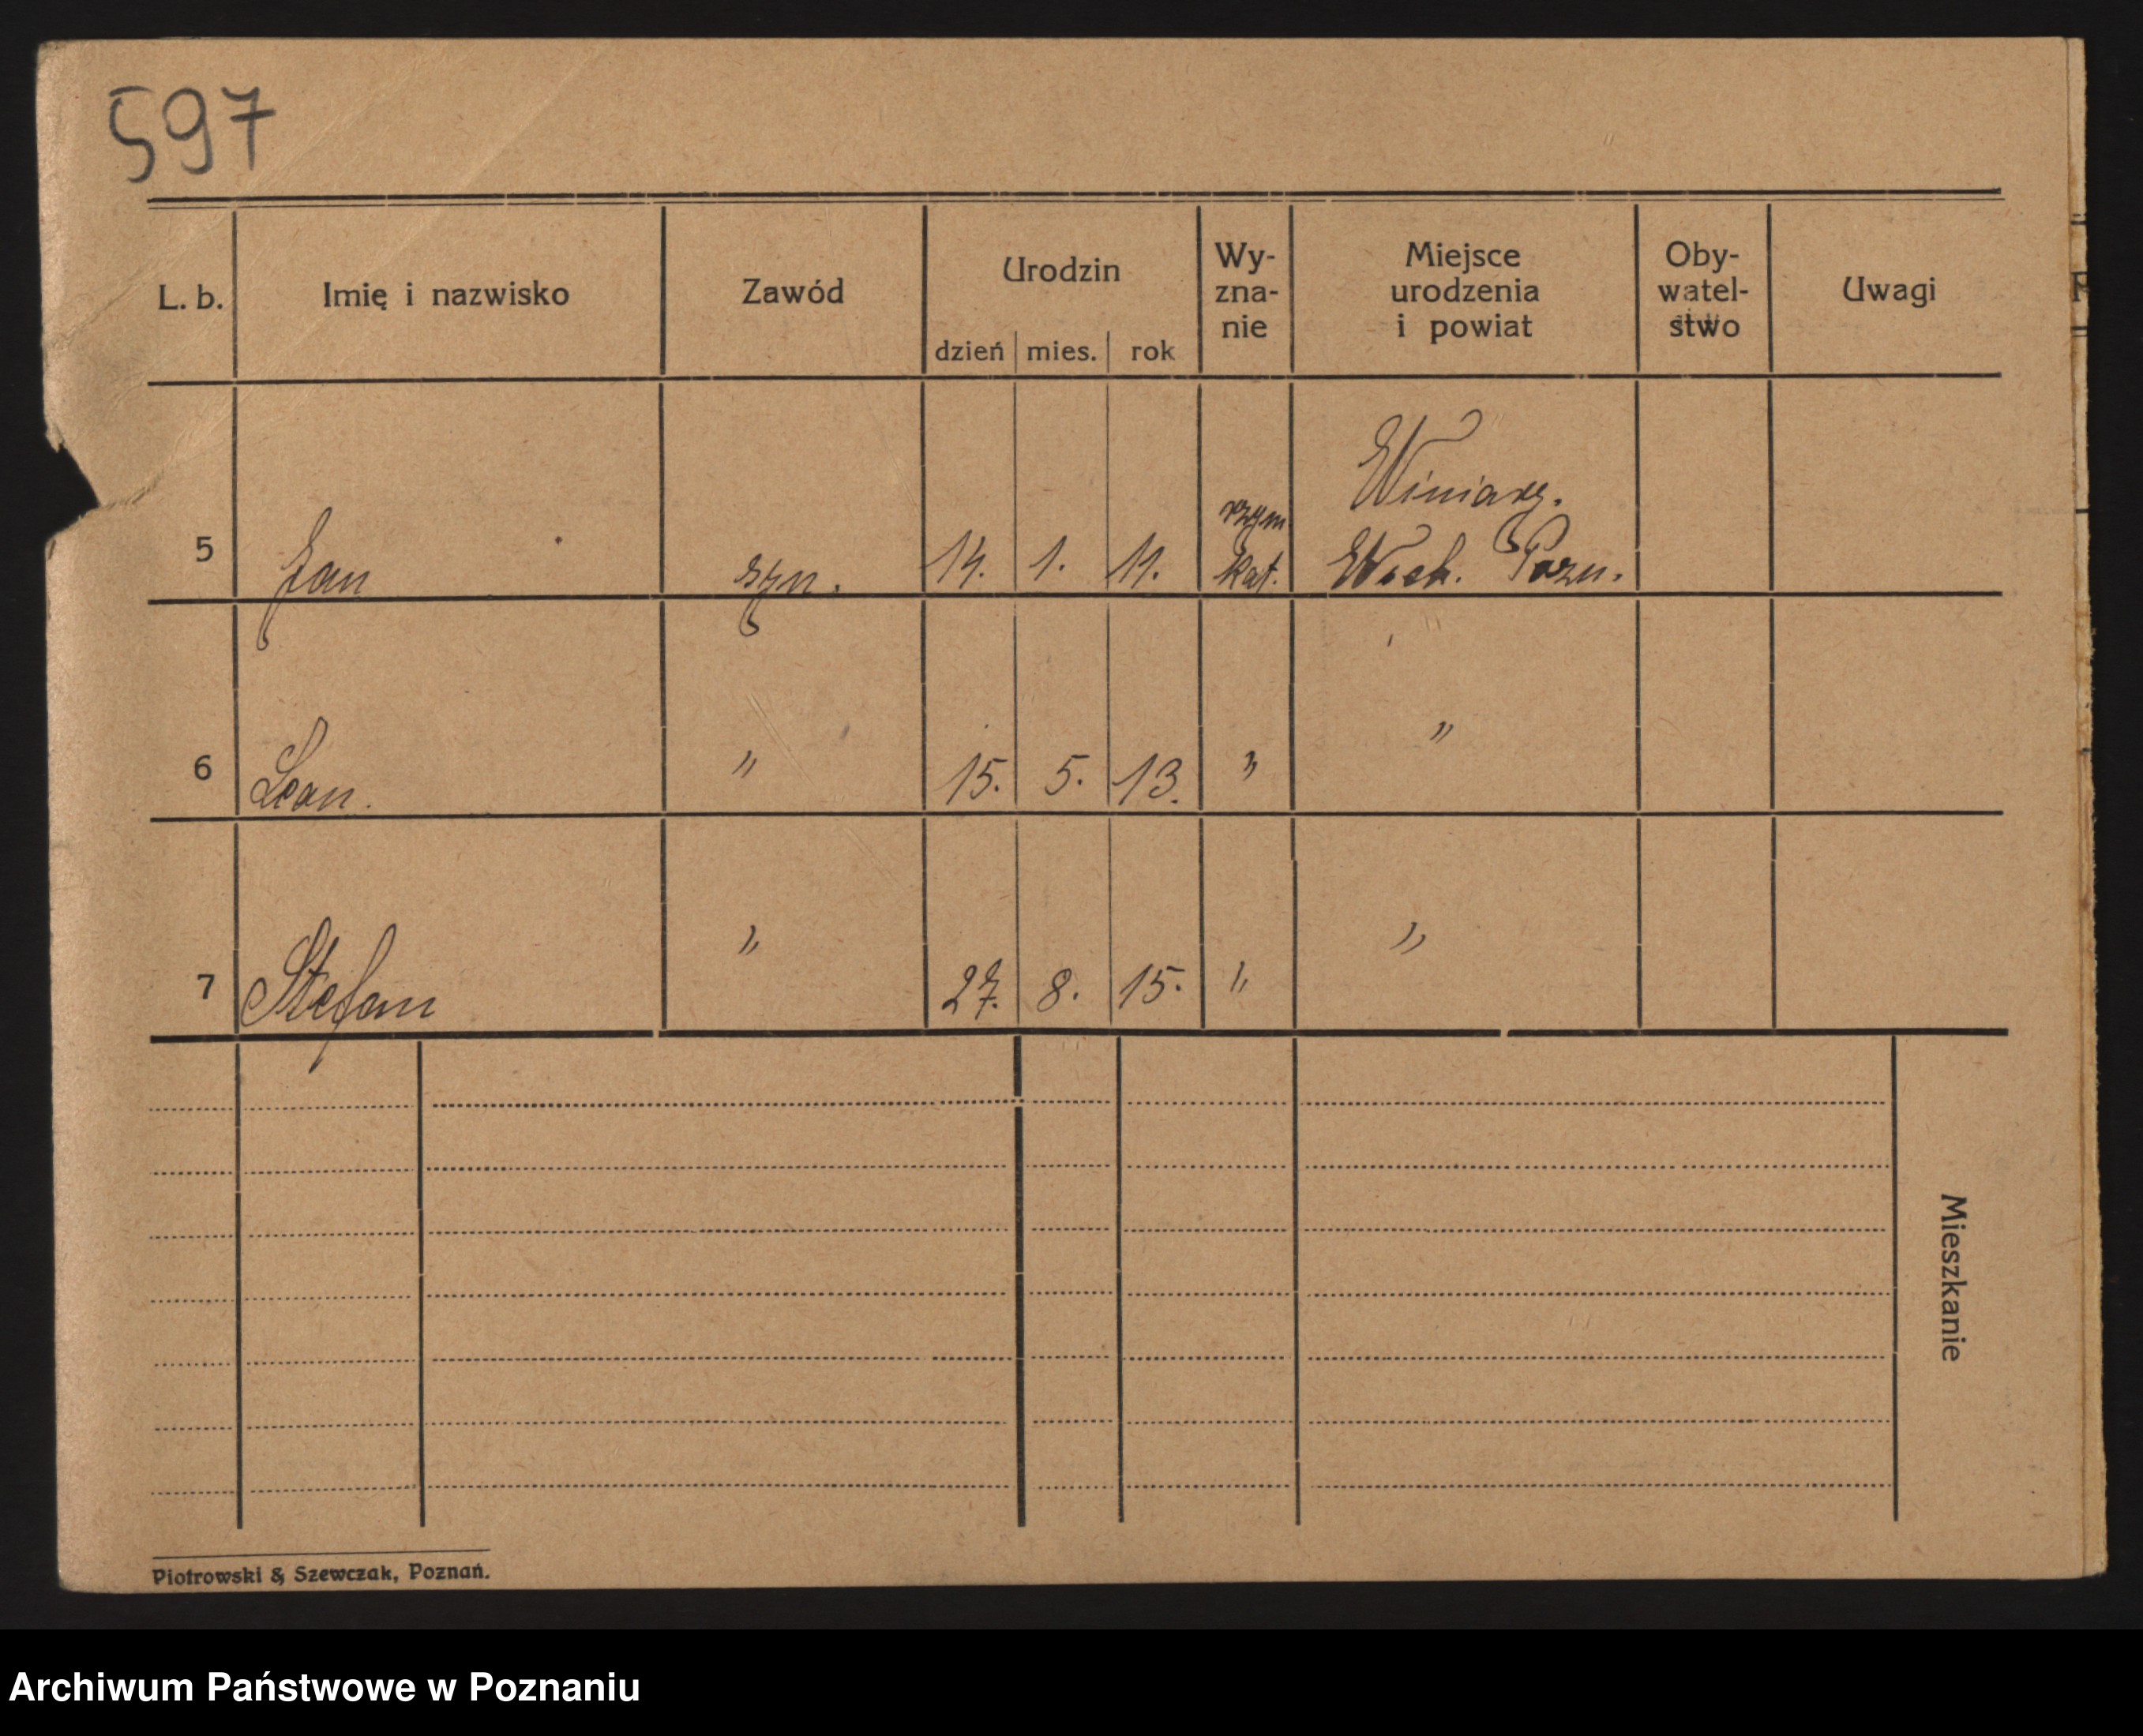 597
L. b.
Imię i nazwisko
Zawód
Urodzin
dzień mies. rok
Wy-
zna-
nie
Miejsce
urodzenia
i powiat
Oby-
watel-
stwo
Uwagi
Winiary.
5 Jan syn. 14. 1. 11. rzym
kat. Wsch. Pozn.
6 Leon. " 15. 5. 13. " "
7 Stefan " 27. 8. 15. " "
Mieszkanie
Piotrowski & Szewczak, Poznań.
Archiwum Państwowe w Poznaniu